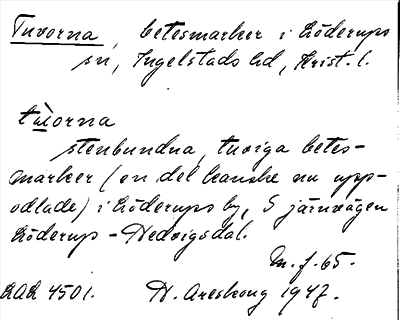 Tuvorna, betesmarker i Löderups
sn, Ingelstads hd, Krist. l.
tùorna
stenbundna, tuviga betes-
marker (en del kanske nu upp-
odlade) i Löderups by, S järnvägen
Löderup - Hedvigsdal.
M. f. 65.
LAL 4501. H. Areskoug 1947.